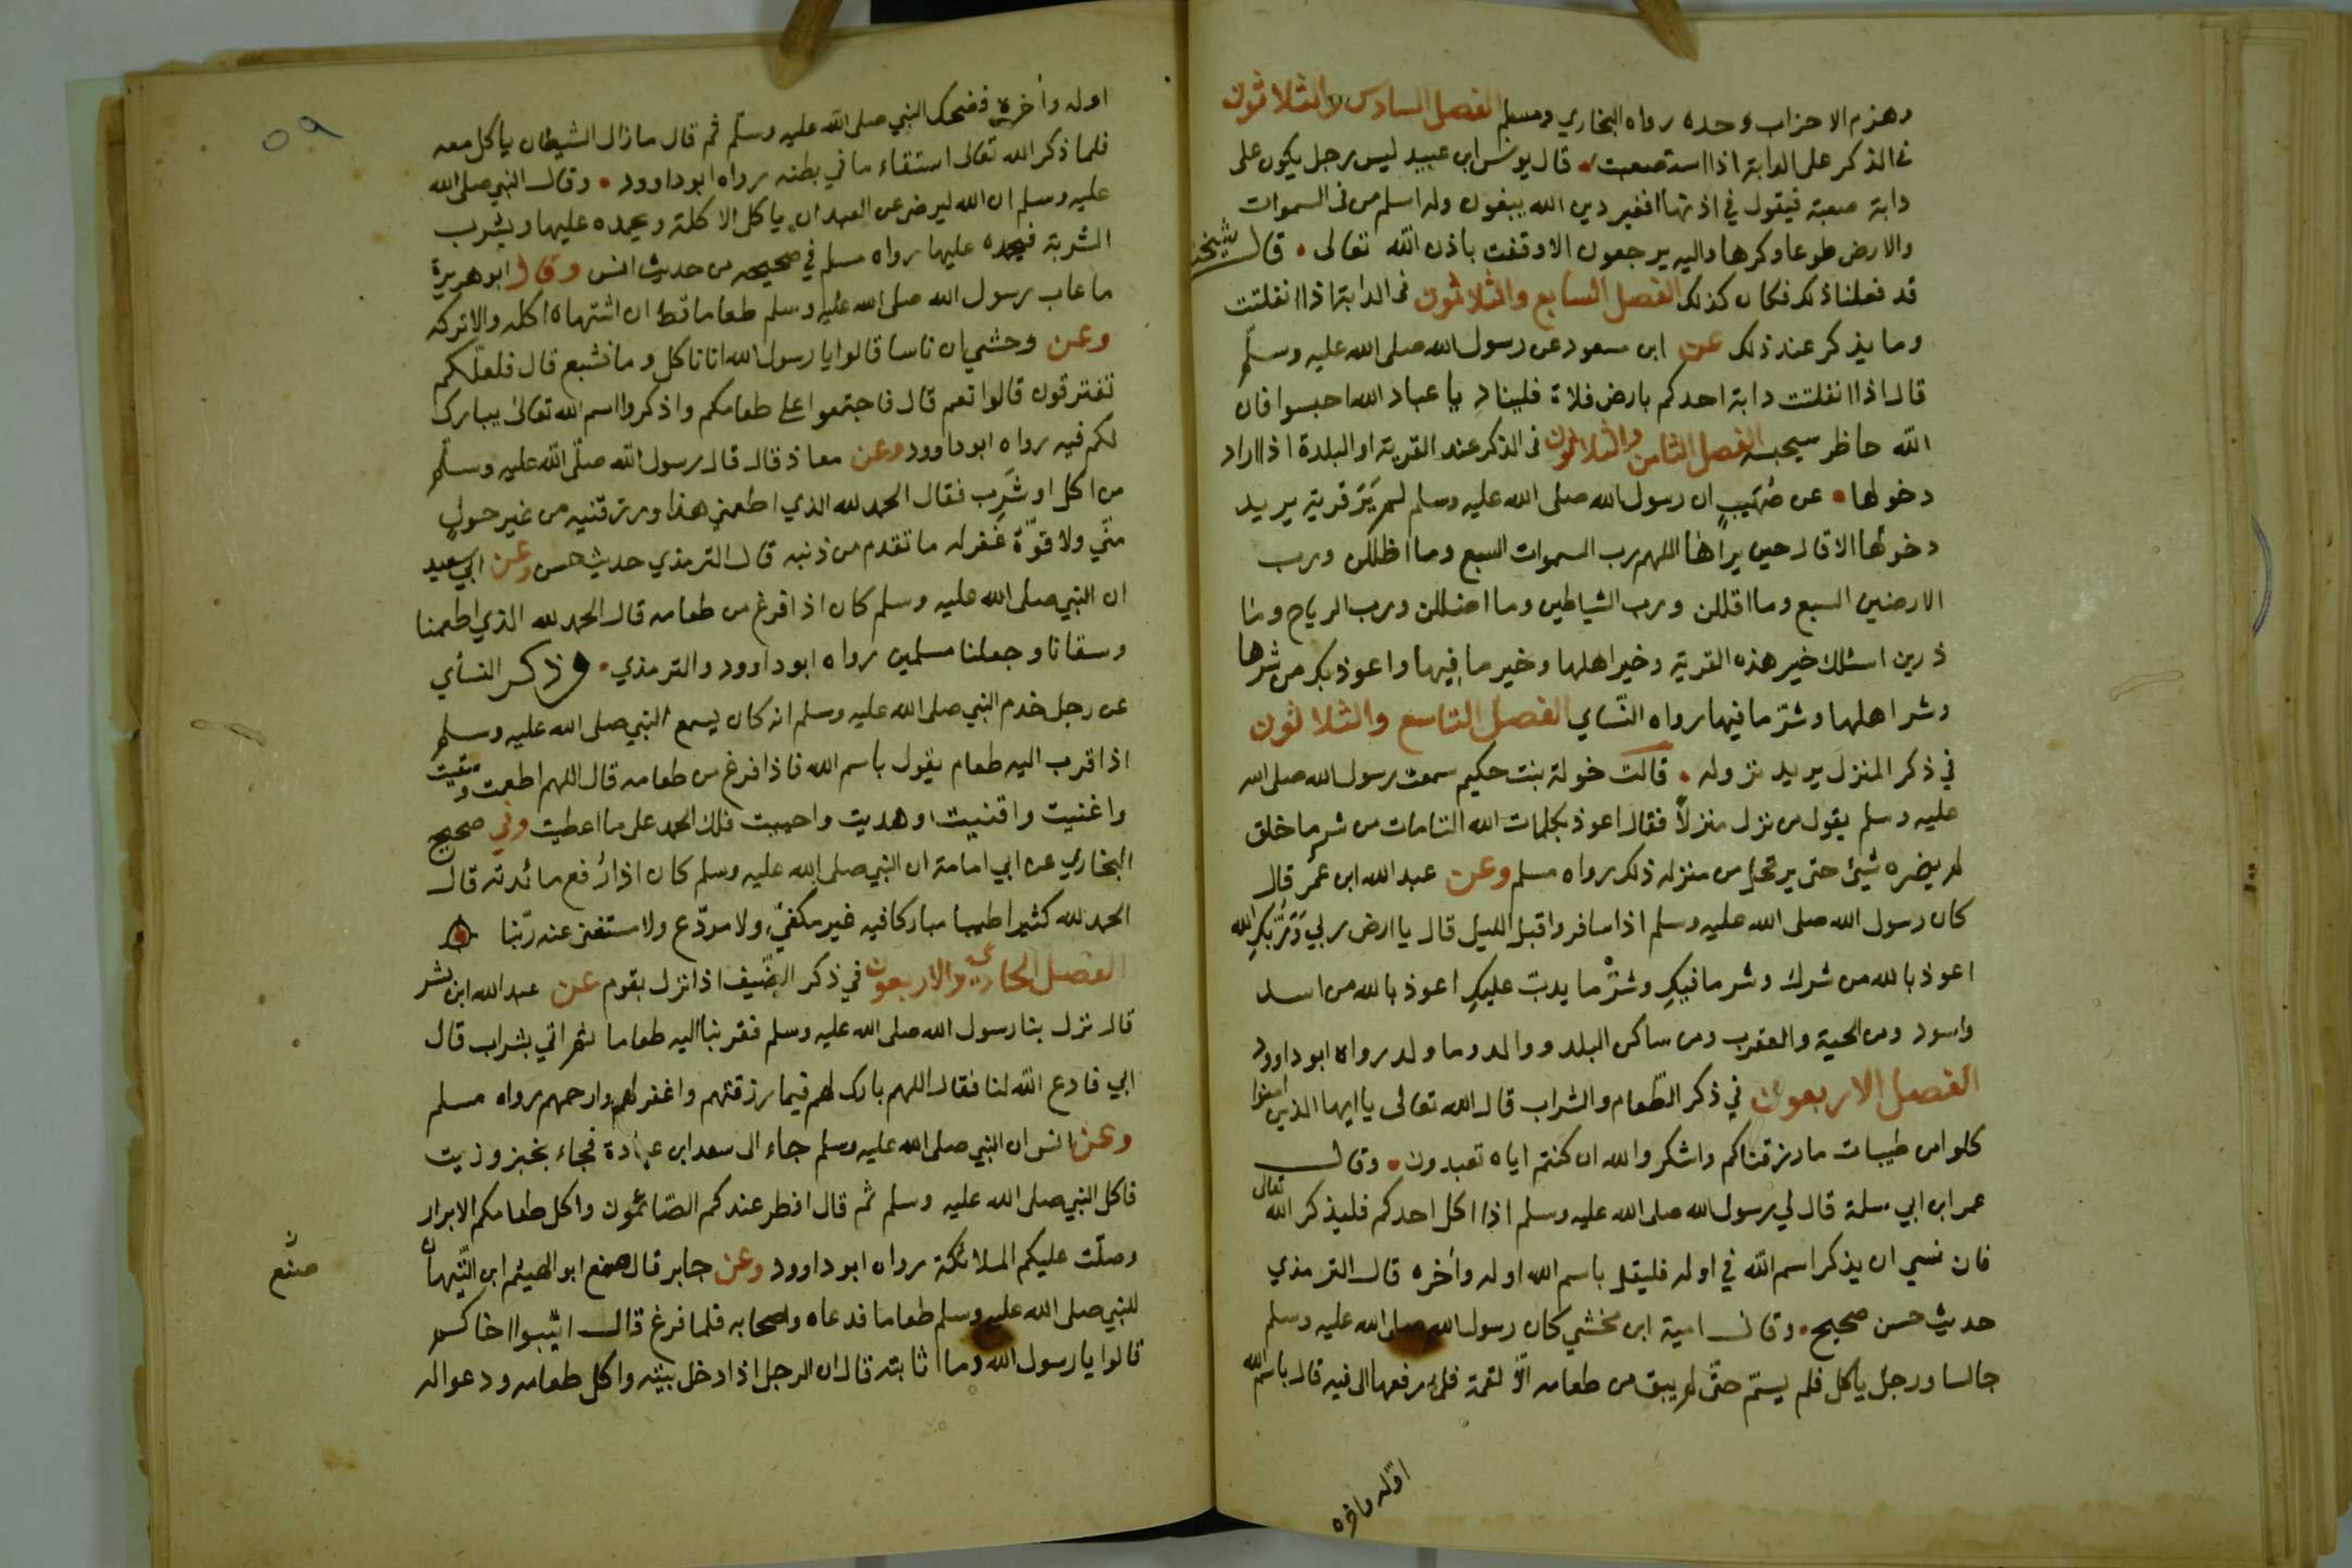 وهزم الاحزاب وحده رواه البخاري ومسلم الفصل السادس والثلاثون
في الذكر على الدابة اذا استصعبت قال يونس ابن عبيد ليس رجل يكون على
دابة صعبة فيقول في اذنها افغير دين الله يبغون وله اسلم من في السموات
والارض طوعا وكرها واليه يرجعون الا وقفت باذن الله تعالى قال شيخنا
قد فعلنا ذلك فكان كذلك الفصل السابع والثلاثون في الدابة اذا انفلتت
وما يذكر عند ذلك عن ابن مسعود عن رسول الله صلى الله عليه وسلم
قال اذا انفلتت دابة احدكم بارض فلاة فليناد يا عباد الله احبسوا فان
الله حاظر سيحبسه الفصل الثامن والثلاثون في الذكر عند القرية او البلدة اذا اراد
دخولها عن صُهَيبٍ ان رسول الله صلى الله عليه وسلم لم يَرَ قرية يريد
دخولها الا قال حين يراها اللهم رب السموات السبع وما اظللن ورب
الارضين السبع وما اقللن ورب الشياطين وما اضللن ورب الرياح وما
ذرين اسئلك خير هذه القرية وخير اهلها وخير ما فيها واعوذ بك من شرها
وشر اهلها وشر ما فيها رواه النّساي الفصل التاسع والثلاثون
في ذكر المنزل يريد نزوله قالت خولة بنت حكيم سمعت رسول الله صلى الله
عليه وسلم يقول من نزل منزلاً فقال اعوذ بكلمات الله التامات من شر ما خلق
لم يضره شيئ حتى يرتحل من منزله ذلك رواه مسلم وعن عبد الله ابن عمر قال
كان رسول الله صلى الله عليه وسلم اذا سافر واقبل الليل قال يا ارض ربي وَرَبُّكِ الله
اعوذ بالله من شرك وشر ما فيكِ وشرّ ما يدبّ عليكِ اعوذ بالله من اسد
واسود ومن الحية والعقرب ومن ساكن البلد ووالد وما ولد رواه ابو داوود
الفصل الاربعون في ذكر الطّعام والشراب قال الله تعالى يا ايها الذين امنوا
كلوا من طيبات ما رزقناكم واشكروا لله ان كنتم اياه تعبدون وقال
عمر ابن ابي سلمة قال لي رسول الله صلى الله عليه وسلم اذا اكل احدكم فليذكر الله تعالى
فان نسي ان يذكر اسم الله في اوله فليقل باسم الله اوله وآخره قال الترمذي
حديث حسن صحيح وقال امية ابن مخشي كان رسول الله صلى الله عليه وسلم
جالسا ورجل ياكل فلم يسمّ حتّى لم يبق من طعامه الّا لقمة فلما رفعها الى فيه قال باسم الله
اوّله وآخره
٥٩
اوله وآخره فضحك النبي صلى الله عليه وسلّم ثم قال ما زال الشيطان ياكل معه
فلما ذكر الله تعالى استقاء ما في بطنه رواه ابو داوود وقال النبي صلى الله
عليه وسلم ان الله ليرضى عن العبد ان ياكل الاكلة ويحمده عليها ويشرب
الشربة فيحمده عليها رواه مسلم في صحيحه من حديث انس وقال ابو هريرة
ما عاب رسول الله صلى الله عليه وسلم طعاما قط ان اشتهاه اكله والا تركه
وعن وحشي ان ناسا قالوا يا رسول الله انا ناكل وما نشبع قال فلعلّكم
تفترقون قالوا نعم قال فاجتمعوا على طعامكم واذكروا اسم الله تعالى يبارك
لكم فيه رواه ابو داوود وعن معاذ قال قال رسول الله صلّى الله عليه وسلّم
من اكل او شَرِب فقال الحمد لله الذي اطعمني هذا ورزقنيه من غير حولٍ
منّي ولا قوّة غفر له ما تقدم من ذنبه قال الترمذي حديث حسن وعن ابي سعيد
ان النبي صلى الله عليه وسلم كان اذا فرغ من طعامه قال الحمد لله الذي اطعمنا
وسقانا وجعلنا مسلمين رواه ابو داوود والترمذي وذكر النسأي
عن رجل خدم النبي صلى الله عليه وسلم انه كان يسمع النبي صلى الله عليه وسلم
اذا قرب اليه طعام يقول باسم الله فاذا فرغ من طعامه قال اللهم اطعمت وسقيت
واغنيت واقنيت وهديت واحييت فلك الحمد على ما اعطيت وفي صحيح
البخاري عن ابي امامة ان النبي صلى الله عليه وسلم كان اذا رُفع مائدته قال
الحمد لله كثيرا طيبا مباركا فيه غير مكفيّ ولا مودّع ولا مستغنى عنه ربّنا
الفصل الحادي والاربعون في ذكر الضّيف اذا نزل بقوم عن عبد الله ابن بشر
قال نزل بنا رسول الله صلى الله عليه وسلم فقربنا اليه طعاما ثم اتي بشراب قال
ابي فادع الله لنا فقال اللهم بارك لهم فيما رزقتهم واغفر لهم وارحمهم رواه مسلم
وعن انس ان النبي صلى الله عليه وسلم جاء الى سعد ابن عبادة فجاء بخبز وزيت
فاكل النبي صلى الله عليه وسلم ثم قال افطر عندكم الصّائمون واكل طعامكم الابرار
وصلّت عليكم الملائكة رواه ابو داوود وعن جابر قال صنع ابو الهيثم ابن التّيهان
صنع
للنبي صلى الله عليه وسلم طعاما فدعاه واصحابه فلما فرغ قال اثيبوا اخاكم
قالوا يا رسول الله وما اثابته قال ان الرجل اذا دخل بيته واكل طعامه ودعوا له